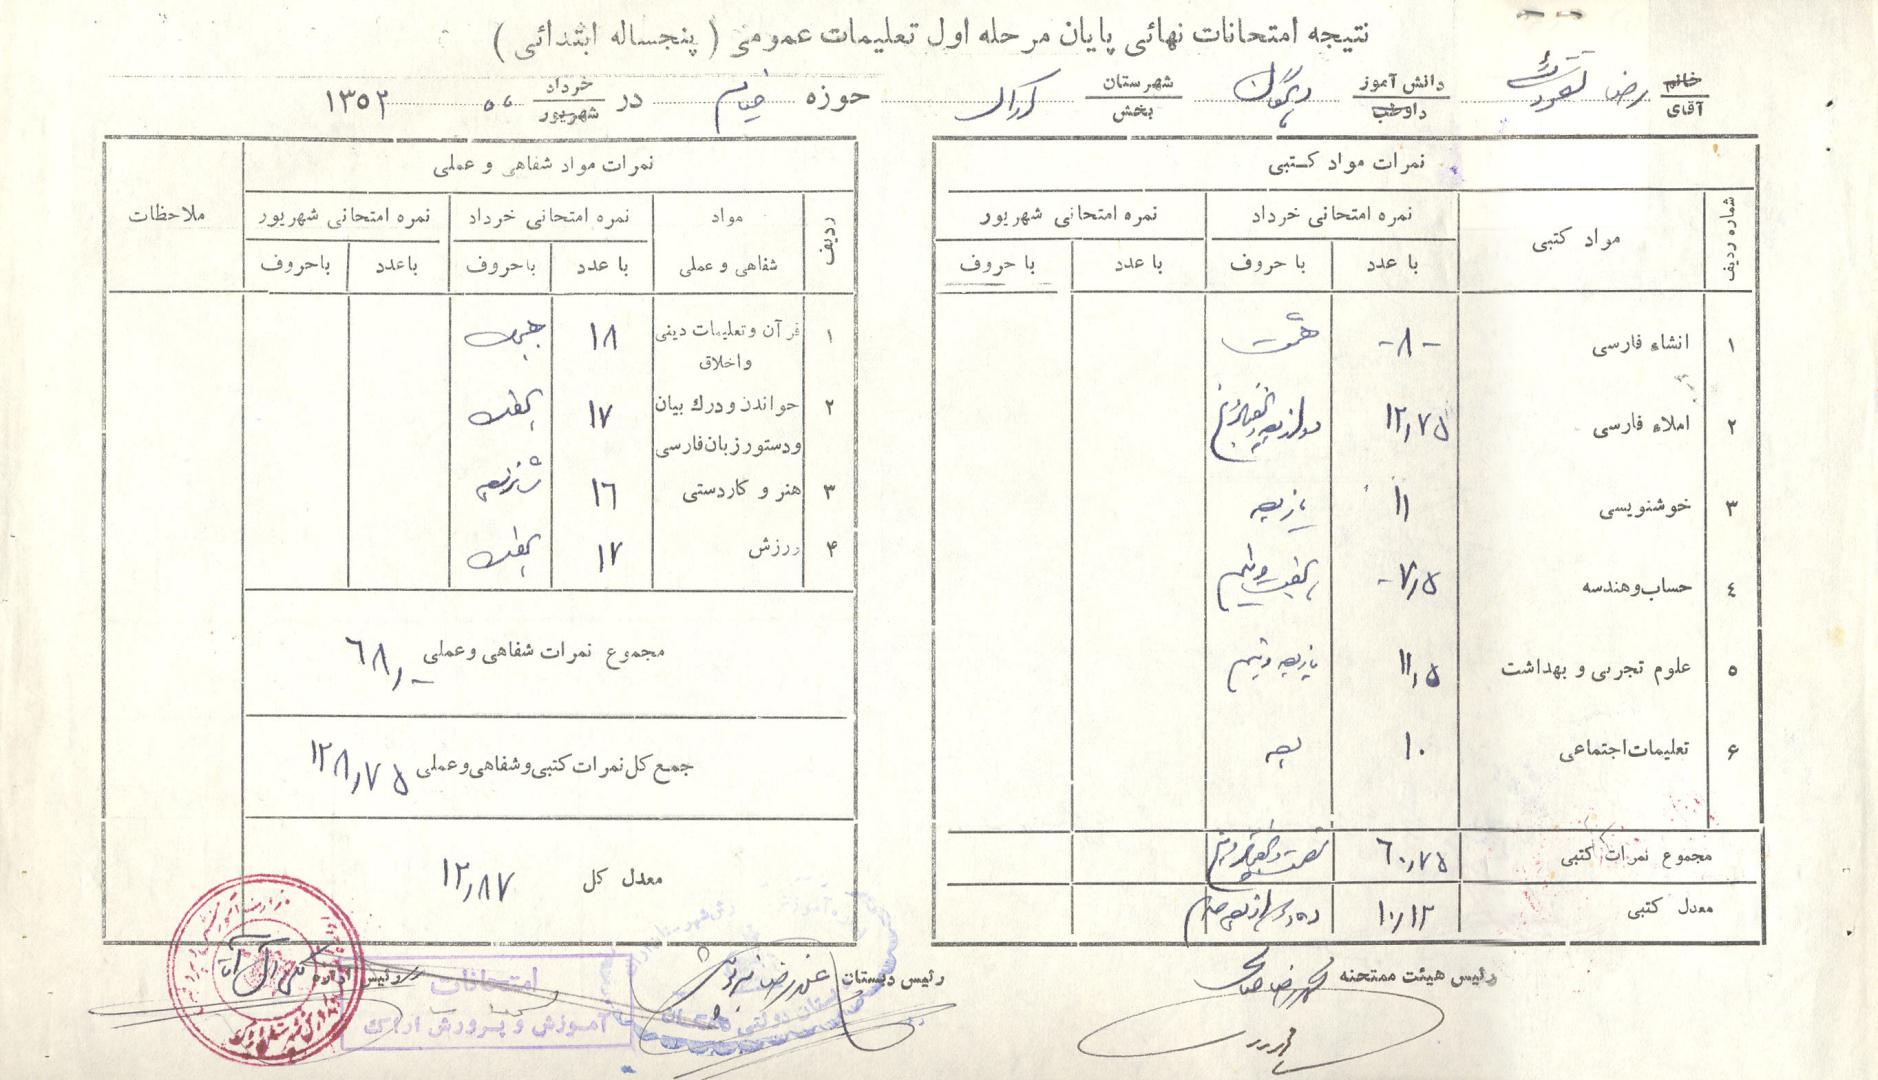 نتیجه امتحانات نهائی پایان مرحله اول تعلیمات عمومی ( پنجساله ابتدائی )
خانم
آقای
رضا
دانش آموز
داوطلب
دهگان
شهرستان
بخش
اراک
حوزه خیام در
خرداد
شهریور
ماه ۱۳۵۲
نمرات مواد کتبی
شماره ردیف
مواد کتبی
نمره امتحانی خرداد
نمره امتحانی شهریور
با عدد
با حروف
با عدد
با حروف
۱ انشاء فارسی -۸- هشت
۲ املاء فارسی ۱۲٫۷۵ دوازده و هفتاد و پنج
۳ خوشنویسی ۱۱ یازده
٤ حساب و هندسه ۷٫۵- هفت و نیم
۵ علوم تجربی و بهداشت ۱۱٫۵ یازده و نیم
۶ تعلیمات اجتماعی ۱۰ ده
مجموع نمرات کتبی ٦۰٫۷۵ شصت و هفتاد و پنج
معدل کتبی ۱۰٫۱۲ ده و دوازده صدم
نمرات مواد شفاهی و عملی
ملاحظات
ردیف
مواد
شفاهی و عملی
نمره امتحانی خرداد
نمره امتحانی شهریور
با عدد
باحروف
باعدد
باحروف
۱ قرآن و تعلیمات دینی ۱۸ هیجده
و اخلاق
۲ خواندن و درك بیان ۱۷ هفده
و دستور زبان فارسی
۳ هنر و کاردستی ۱٦ شانزده
۴ ورزش ۱۷ هفده
مجموع نمرات شفاهی و عملی ٦۸٫-
جمع کل نمرات کتبی و شفاهی و عملی ۱۲۸٫۷۵
معدل کل ۱۲٫۸۷
رئیس هیئت ممتحنه
رئیس دبستان
رئیس اداره
امتحانات
آموزش و پرورش اراك